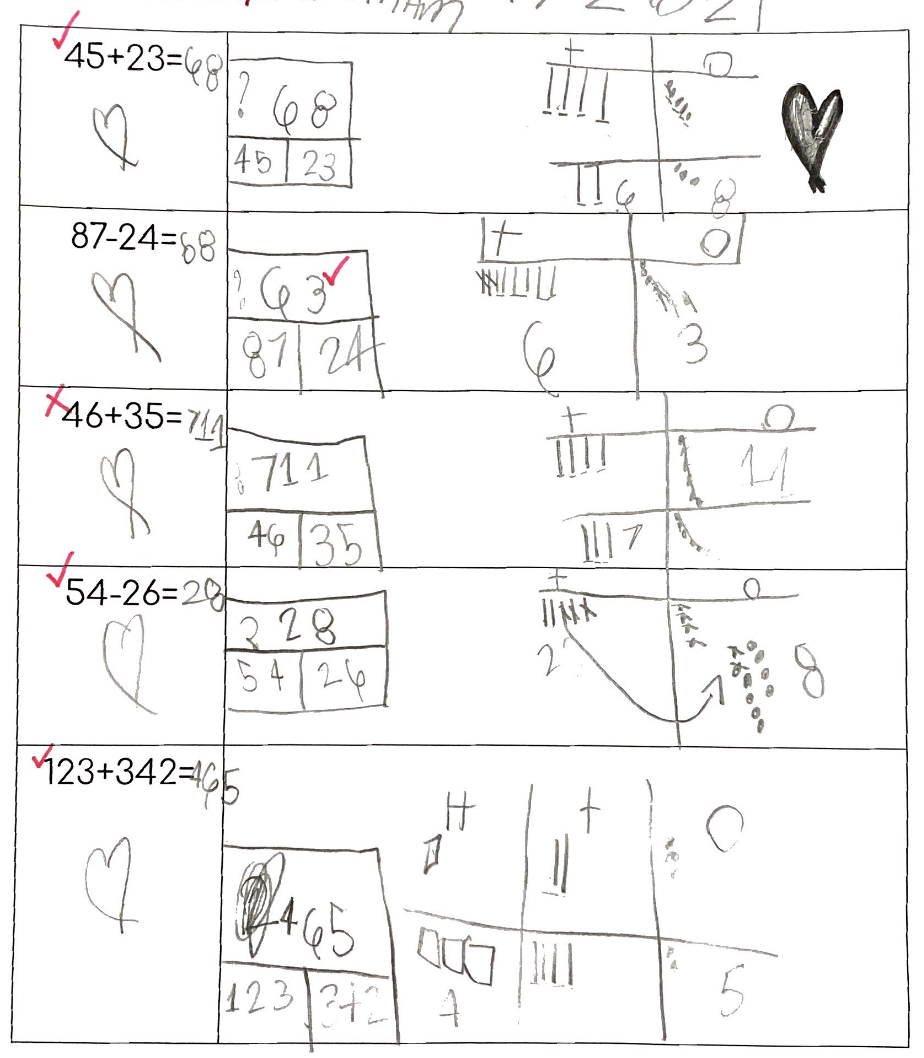 45+23=68
? 68
45 23
+ O
6 8
87-24=68
? 63
87 24
+ O
6 3
46+35=711
? 711
46 35
+ O
11
7
54-26=28
? 28
54 26
+ O
2 8
123+342=465
H + O
465
123 342
4 5